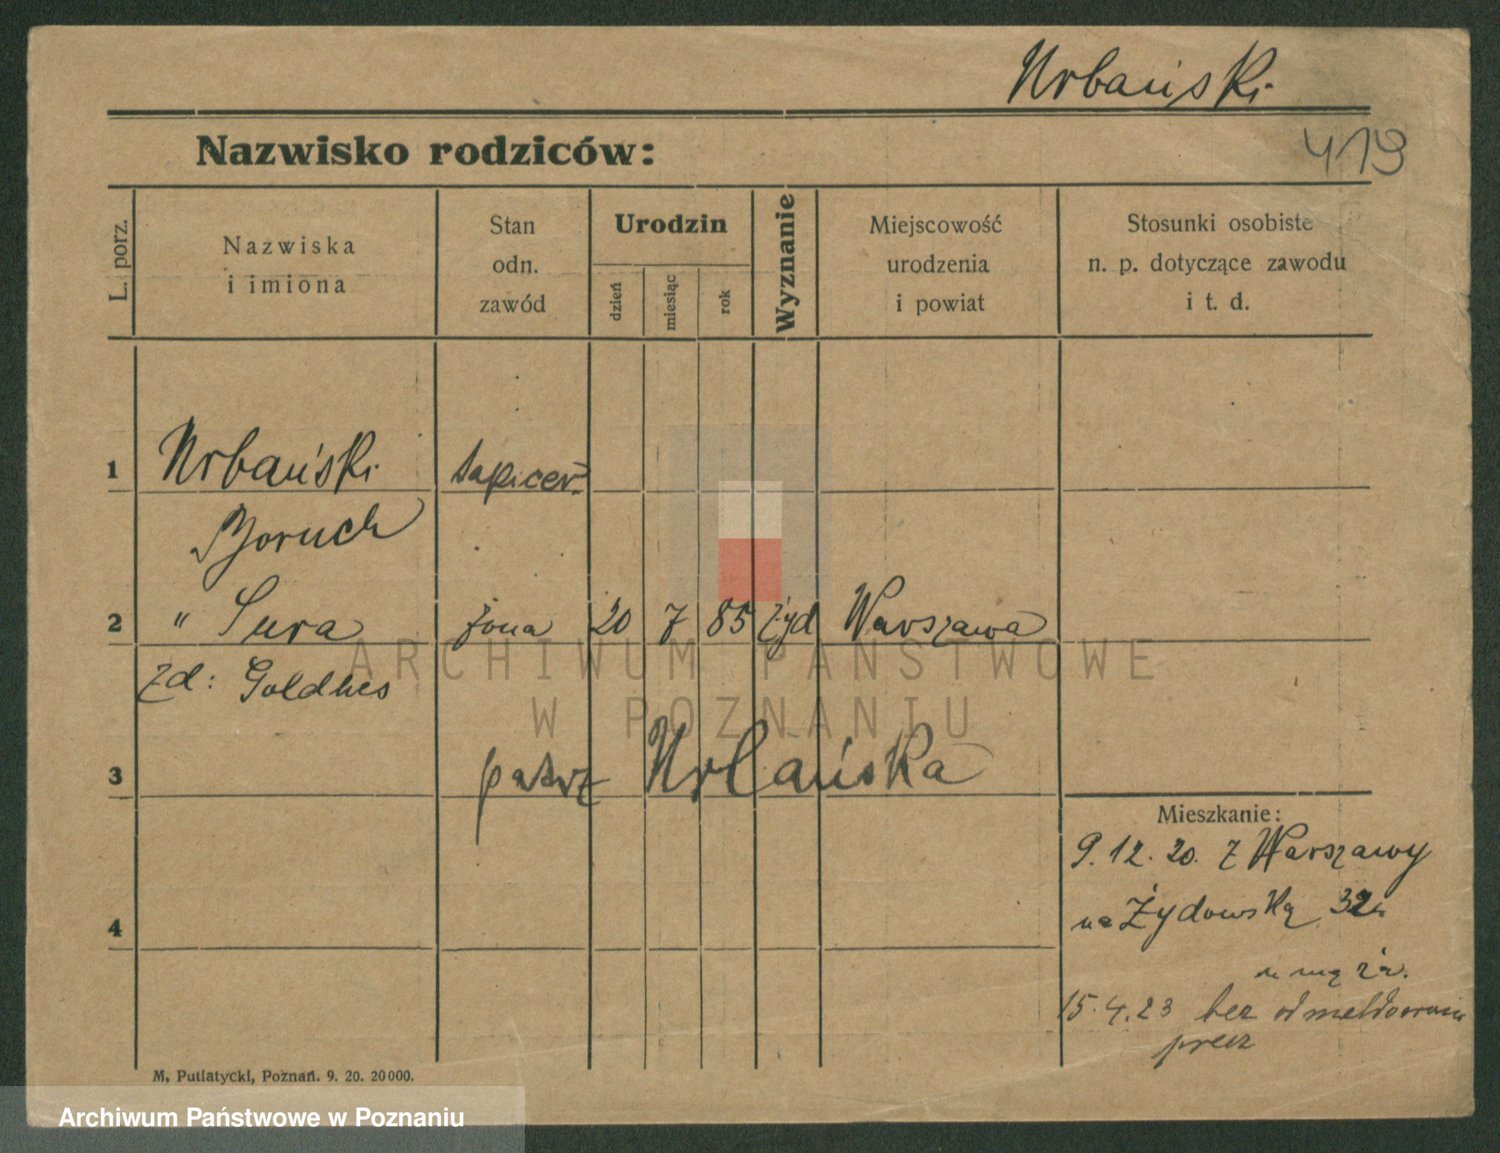 Urbański
419
Nazwisko rodziców:
L. porz.
Nazwiska
i imiona
Stan
odn.
zawód
Urodzin
dzień
miesiąc
rok
Wyznanie
Miejscowość
urodzenia
i powiat
Stosunki osobiste
n. p. dotyczące zawodu
i t. d.
1 Urbański tapicer
Boruch
2 " Sura żona 20 7 85 żyd Warszawa
zd: Goldhes
ARCHIWUM PAŃSTWOWE
W POZNANIU
3 patrz Urbańska
Mieszkanie:
9.12.20. z Warszawy
na Żydowską 32
4
15.4.23 bez odmeldowania
precz
M. Putiatycki, Poznań. 9. 20. 20000.
Archiwum Państwowe w Poznaniu